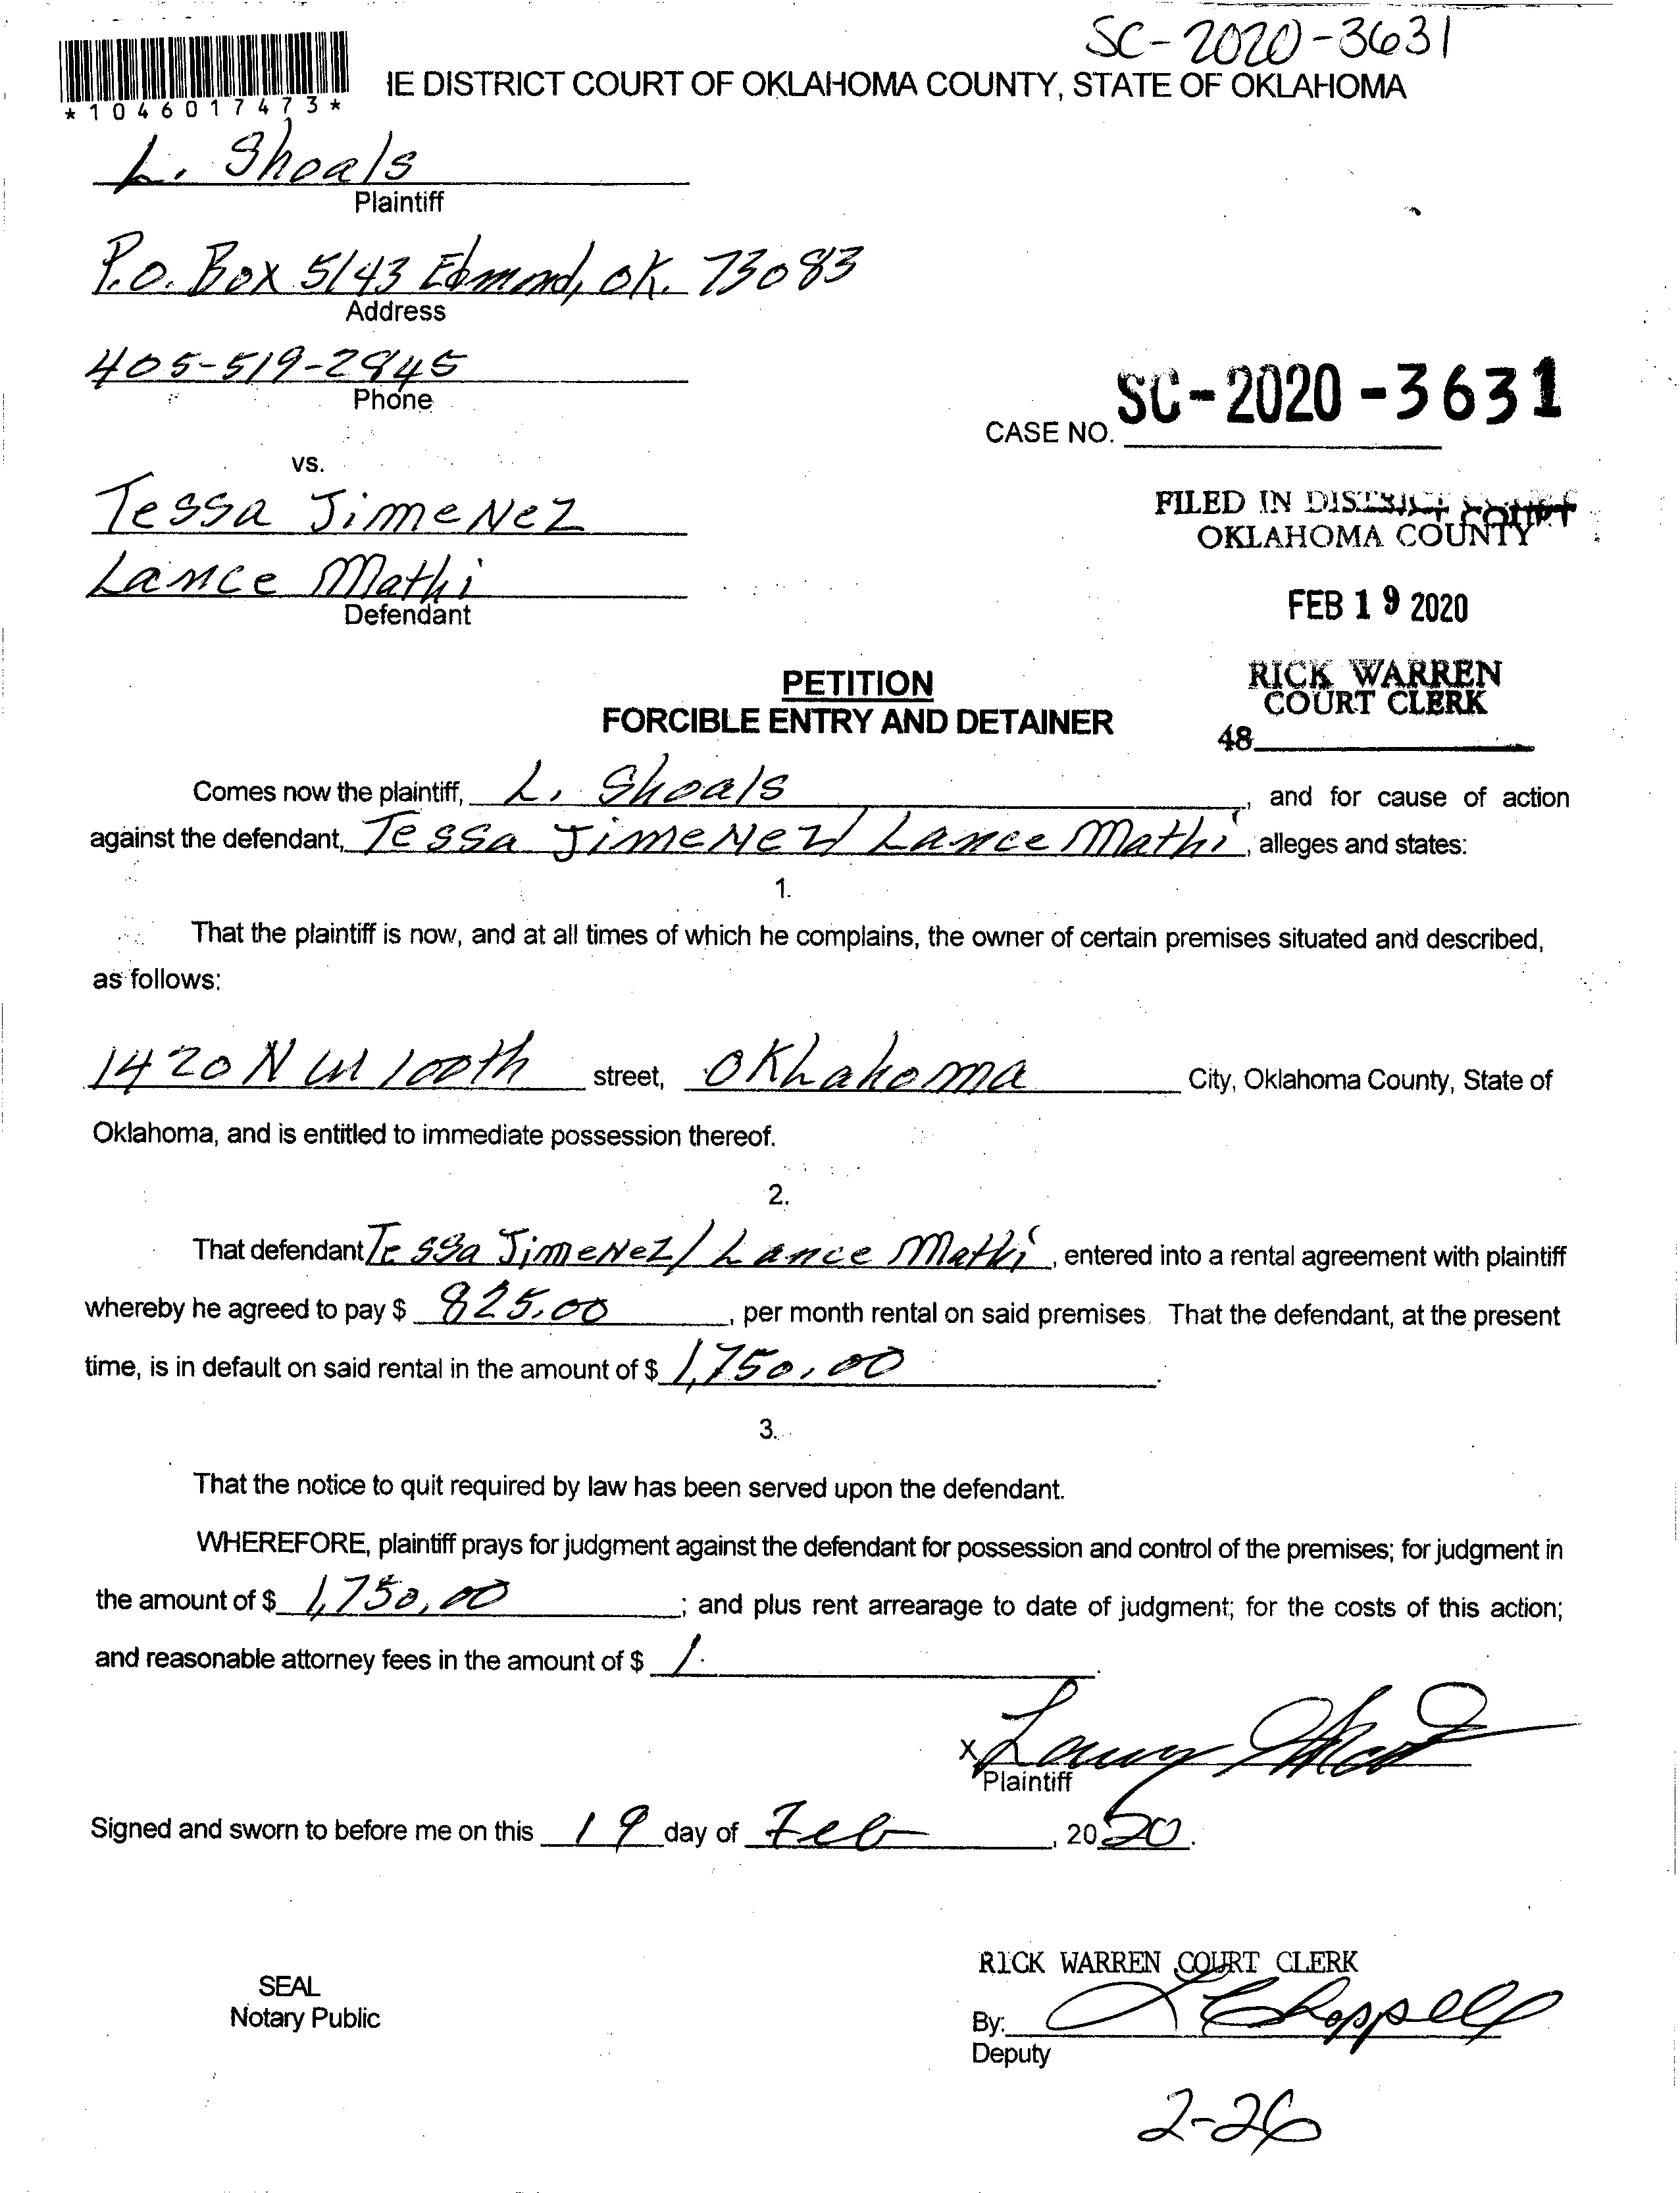 SC-2020-3631
IE DISTRICT COURT OF OKLAHOMA COUNTY, STATE OF OKLAHOMA
*1046017473*
L. Shoals
Plaintiff
P.O. Box 5143 Edmond, OK. 73083
Address
405-519-2945
Phone
CASE NO. SC-2020-3631
vs.
Tessa JimeNez
Lance Mathi
Defendant
FILED IN DISTRICT COURT
OKLAHOMA COUNTY
FEB 19 2020
RICK WARREN
COURT CLERK
48
PETITION
FORCIBLE ENTRY AND DETAINER
Comes now the plaintiff, L. Shoals, and for cause of action
against the defendant, Tessa JimeNez/ Lance Mathi, alleges and states:
1.
That the plaintiff is now, and at all times of which he complains, the owner of certain premises situated and described,
as follows:
1420 NW 100th street, OKLahoma City, Oklahoma County, State of
Oklahoma, and is entitled to immediate possession thereof.
2.
That defendant Tessa JimeNez/ Lance Mathi, entered into a rental agreement with plaintiff
whereby he agreed to pay $ 825.00, per month rental on said premises. That the defendant, at the present
time, is in default on said rental in the amount of $ 1,750.00.
3.
That the notice to quit required by law has been served upon the defendant.
WHEREFORE, plaintiff prays for judgment against the defendant for possession and control of the premises; for judgment in
the amount of $ 1,750.00; and plus rent arrearage to date of judgment; for the costs of this action;
and reasonable attorney fees in the amount of $ /.
X
Plaintiff
Signed and sworn to before me on this 19 day of Feb, 2020.
SEAL
Notary Public
RICK WARREN COURT CLERK
By: Choppell
Deputy
2-26